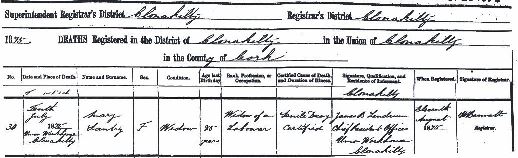 Superintendent Registrar's District Clonakilty Registrar's District Clonakilty
1875 DEATHS Registered in the District of Clonakilty in the Union of Clonakilty
in the County of Cork
No. Date and Place of Death. Name and Surname. Sex. Condition. Age last Birthday. Rank, Profession, or Occupation. Certified Cause of Death, and Duration of Illness. Signature, Qualification, and Residence of Informant. When Registered. Signature of Registrar.
Clonakilty
30
Tenth
July
1875
Union Workhouse
Clonakilty
Mary
F
Widow
years
Widow of a
Labourer
Senile Decay
Certified
James
Chief Resident Officer
Union Workhouse
Clonakilty
Eleventh
August
1875
Registrar.